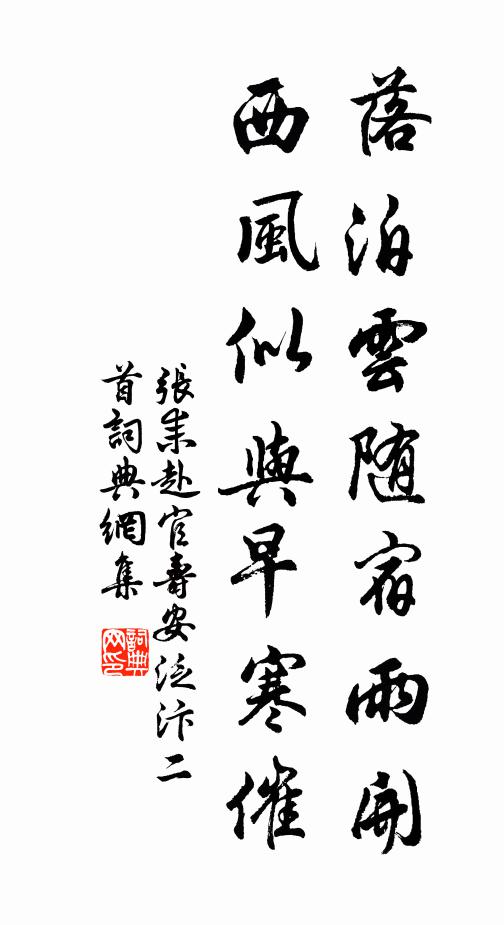 落泊雲随宿雨開
西風似與早寒催
張耒赴官壽安泛汴二
首詞典網集
詞典网印